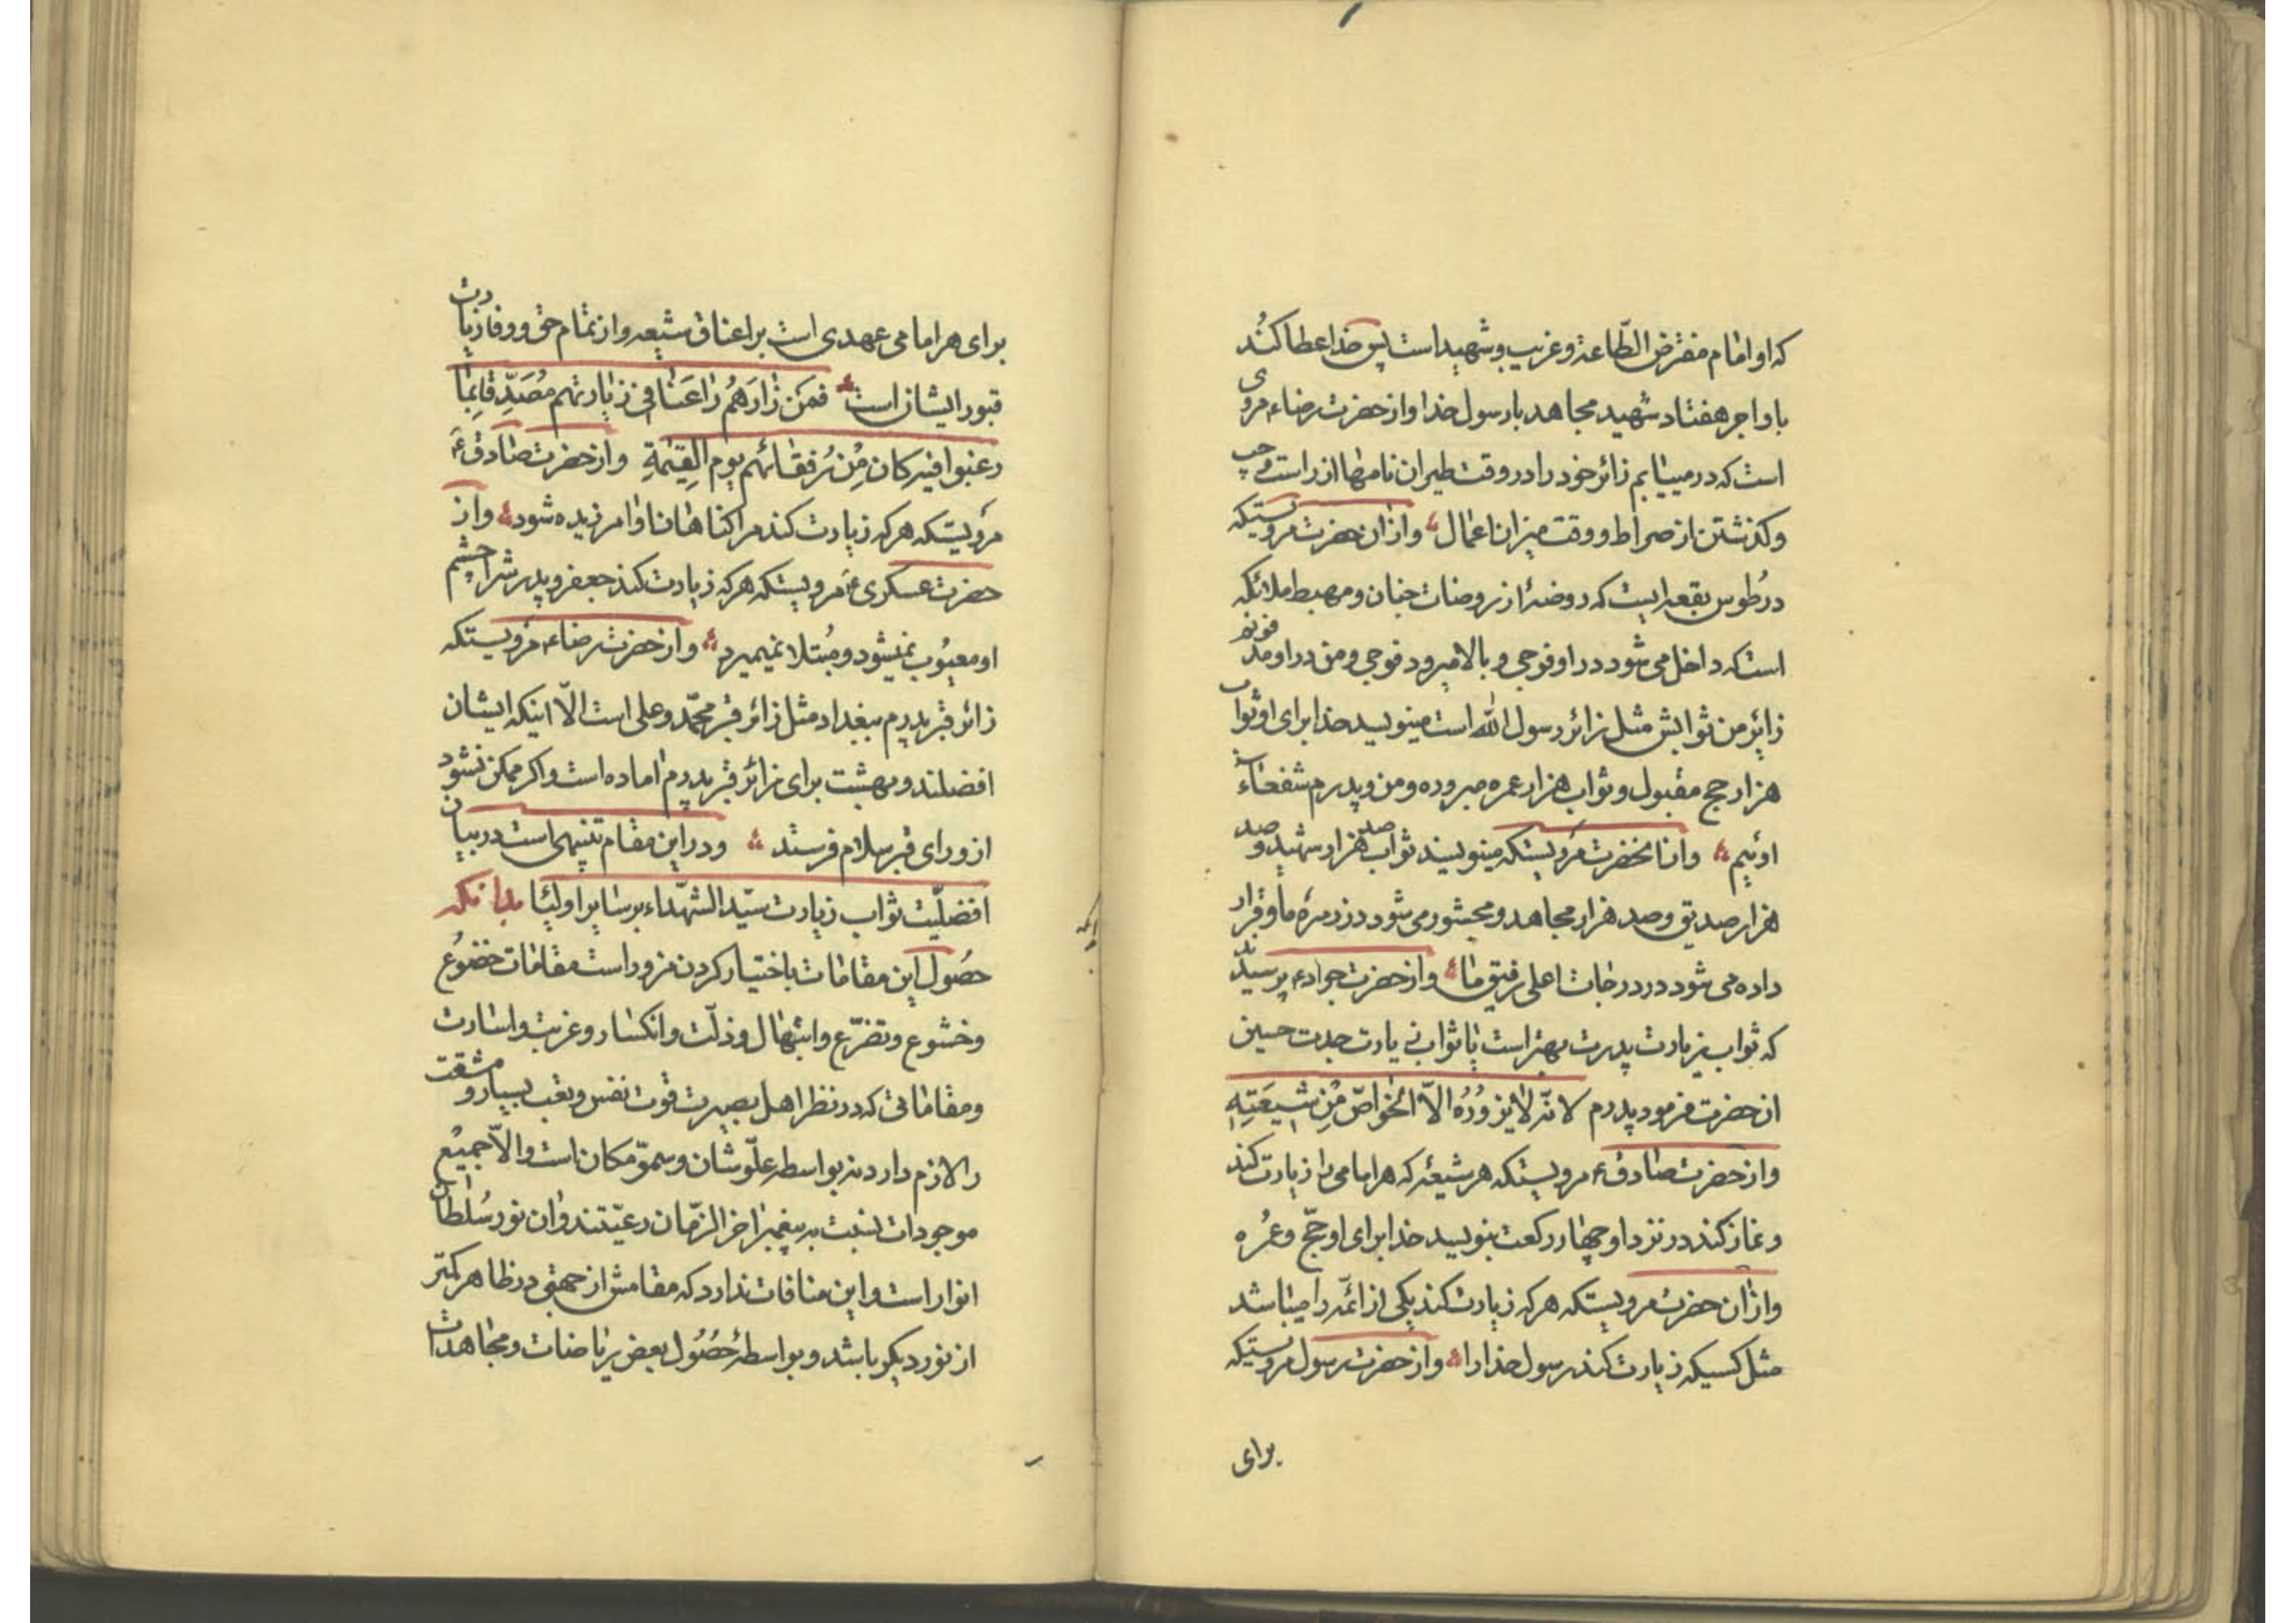 که او امام مفترض الطّاعة و غریب و شهید است پس خدا عطا کند
باو اجر هفتاد شهید مجاهد با رسول خدا و از حضرت رضاء مروی
است که درمییابم زائر خود را در وقت طیران نامها از راست و چپ
و کذشتن از صراط و وقت میزان اعمال و از ان حضرت مرویستکه
در طوس بقعه ایست که روضۀ از روضات جنان و مهبط ملائکه
است که داخل می شود در او فوجی و بالا میرود فوجی و من در او مدفونم
زایر من ثوابش مثل زائر رسول الله است مینویسد خدا برای او ثواب
هزار حج مقبول و ثواب هزار عمره مبروره و من و پدرم شفعاء
اوئیم و از انحضرت مرویستکه مینویسند ثواب صد هزار شهید و صد
هزار صدیق و صد هزار مجاهد و محشور می شود در زمرۀ ما و قرار
داده می شود در درجات اعلی رفیق ما و از حضرت جواد ع پرسیدند
که ثواب زیارت پدرت بهتر است یا ثواب زیارت جدت حسین
ان حضرت فرمود پدرم لانّه لا یزوره الاّ الخواصّ من شیعته
و از حضرت صادق ع مرویستکه هر شیعۀ که هر امامی را زیارت کند
و نماز کند در نزد او چهار رکعت بنویسد خدا برای او حجّ و عمره
و از ان حضرت مرویستکه هر که زیارت کند یکی از ائمّه را میباشد
مثل کسیکه زیارت کند رسول خدا را و از حضرت رسول مرویستیکه
برای
برای هر امامی عهدی است بر اعناق شیعه و از تمام حق و وفا زیارت
قبور ایشان است فمن زارهم راغبا فی زیارتهم مصدّقا بما
رغبوا فیه کان من رفقائهم یوم القیمة و از حضرت صادق ع
مرویستکه هر که زیارت کند مرا کناهان او امرزیده شود و از
حضرت عسکری ع مرویستکه هر که زیارت کند جعفر و پدرش را چشم
او معیوب نمیشود و مبتلا نمیمیرد و از حضرت رضاء مرویستکه
زائر قبر پدرم ببغداد مثل زائر قبر محمّد و علی است الاّ اینکه ایشان
افضلند و بهشت برای زائر قبر پدرم اماده است و اکر ممکن نشود
از ورای قبر سلام فرستد و در این مقام تنبیهی است در بیان
افضلیّت ثواب زیارت سیّد الشهداء بر سایر اولیا بدانکه
حصول این مقامات باختیار کردن مزور است مقامات خضوع
و خشوع و تضرّع و ابتهال و ذلّت و انکسار و غربت و اسارت
و مقاماتی که در نظر اهل بصیرت قوت نفس و تعب بسیار و مشقت
را لازم دارد نه بواسطه علّو شان و سموّ مکان است والاّ جمیع
موجودات نسبت به پیغمبر اخر الزّمان رعیّتند و ان نور سلطان
انوار است و این منافات ندارد که مقامش از جهتی در ظاهر کمتر
از نور دیکر باشد و بواسطۀ حصول بعض ریاضات و مجاهدات